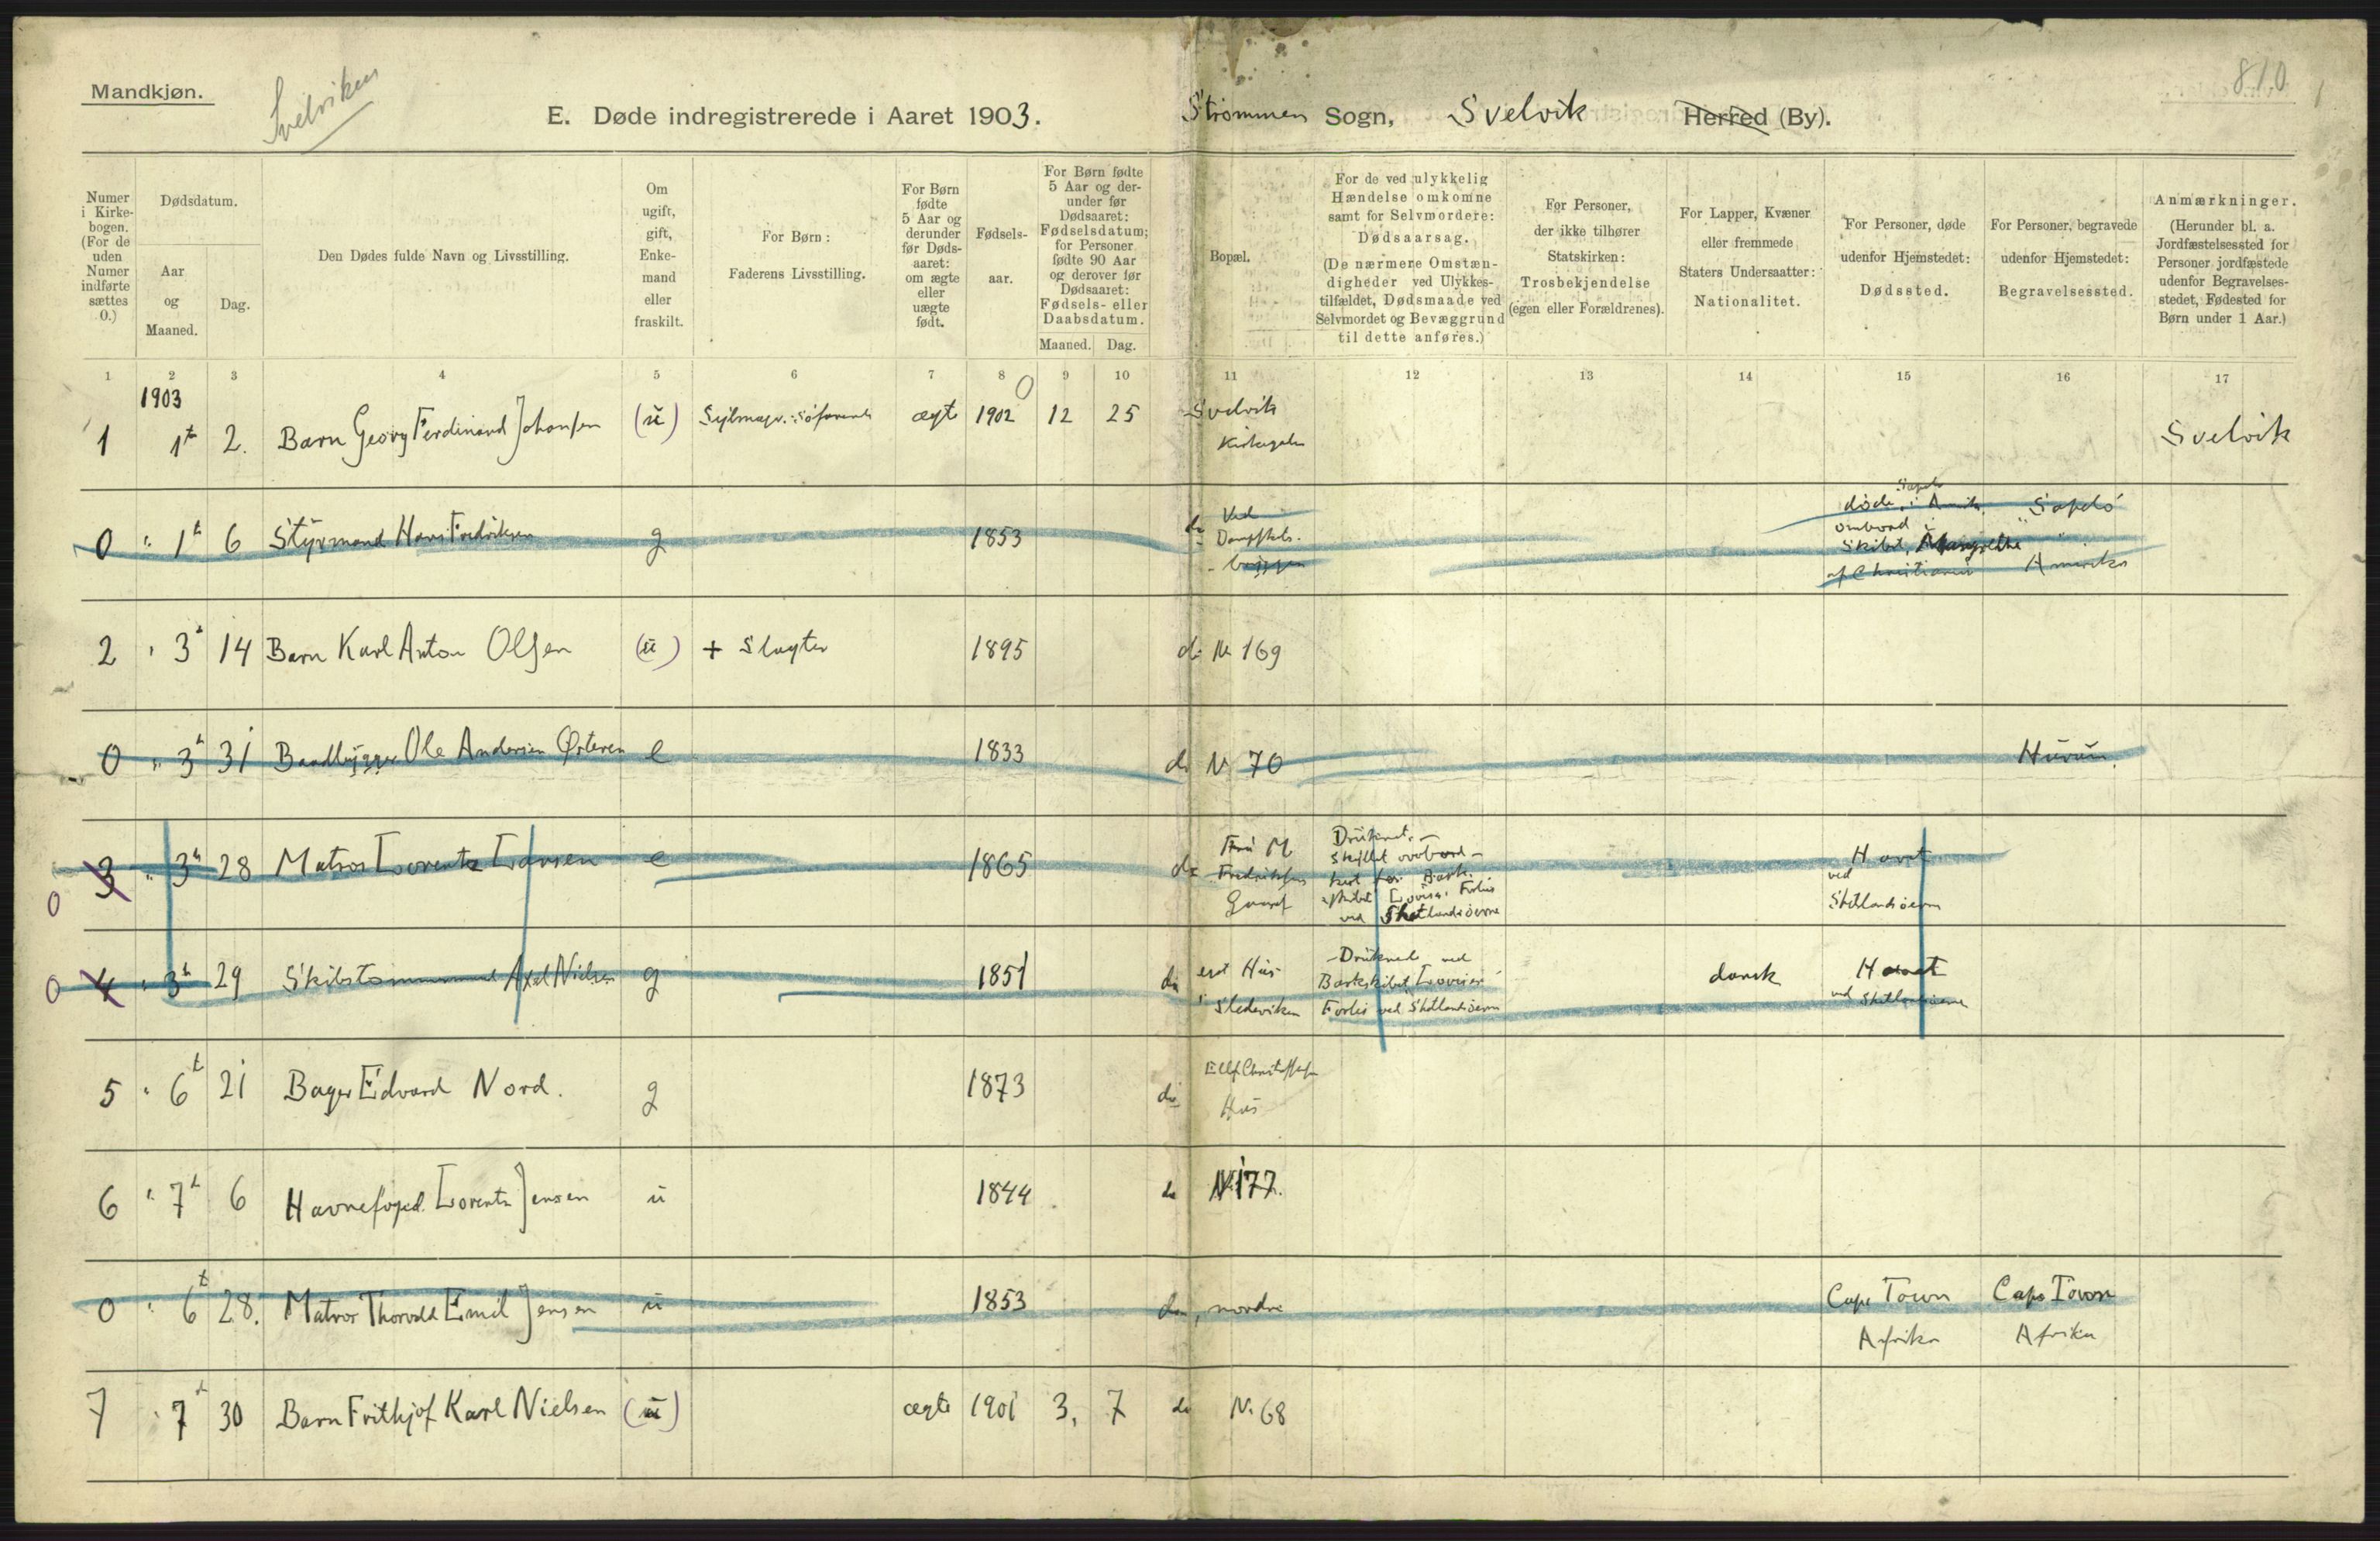 Mandkjøn.
Svelviken
E. Døde indregistrerede i Aaret 1903.
Strømmen Sogn, Svelvik Herred (By).
810
Numer i Kirkebogen. (For de uden Numer indførte sættes 0.)
Dødsdatum.
Aar og Maaned.
Dag.
Den Dødes fulde Navn og Livsstilling.
Om ugift, gift, Enkemand eller fraskilt.
For Børn: Faderens Livsstilling.
For Børn fødte 5 Aar og derunder før Dødsaaret: om ægte eller uægte født.
Fødselsaar.
For Børn fødte 5 Aar og derunder før Dødsaaret: Fødselsdatum; for Personer fødte 90 Aar og derover før Dødsaaret: Fødsels- eller Daabsdatum.
Maaned. Dag.
Bopæl.
For de ved ulykkelig Hændelse omkomne samt for Selvmordere: Dødsaarsag. (De nærmere Omstændigheder ved Ulykkestilfældet, Dødsmaade ved Selvmordet og Bevæggrund til dette anføres.)
For Personer, der ikke tilhører Statskirken: Trosbekjendelse (egen eller Forældrenes).
For Lapper, Kvæner eller fremmede Staters Undersaatter: Nationalitet.
For Personer, døde udenfor Hjemstedet: Dødssted.
For Personer, begravede udenfor Hjemstedet: Begravelsessted.
Anmærkninger. (Herunder bl. a. Jordfæstelsessted for Personer jordfæstede udenfor Begravelsesstedet, Fødested for Børn under 1 Aar.)
1 2 3 4 5 6 7 8 9 10 11 12 13 14 15 16 17
1903
1 1t 2. Barn Georg Ferdinand Johansen (u) ægte 1902 12 25 Svelvik Svelvik
0 " 1t 6 Styrmand Hans Fredriksen g 1853 do Ved Dampskibsbryggen døde i Amerika ombord i Skibet Margrethe af Christiania Amerika
2 " 3t 14 Barn Karl Anton Olsen (u) + Slagter 1895 do No 169
0 " 3t 31 Baadbygger Ole Andersen Østeren e 1833 do No 70 Hurum.
0 3 " 3t 28 Matros Lorentz Larsen e 1865 do Fru M Fredriksens Gaard Druknet. Skyllet overbord Barkskibet Lovisa's Forlis ved Shetlandsøerne Havet ved Shetlandsøerne
0 4 " 3t 29 Skibstømmermand Axel Nielsen g 1851 do eget Hus i Sledeviken Druknede ved Barkskibet Lovisas Forlis ved Shetlandsøerne dansk Havet ved Shetlandsøerne
5 " 6t 21 Bager Edvard Nord. g 1873 do Ellef Christoffersen Hus
6 " 7t 6 Havnefoged Lorentz Jensen u 1844 do No 177.
0 " 6t 28. Matros Thorvald Emil Jensen u 1853 do, nordre Cape Town Afrika Cape Town Afrika
7 " 7t 30 Barn Frithjof Karl Nielsen (u) ægte 1901 3, 7 do No 68